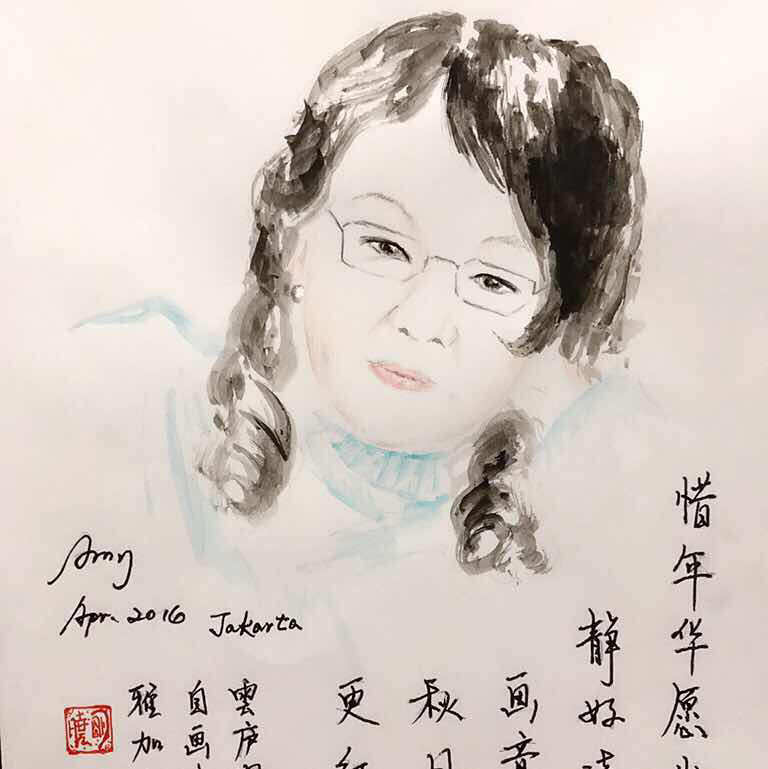 Amy
Apr. 2016 Jakarta
惜年华愿
静好
画
秋
更
雲庐
自画
雅加